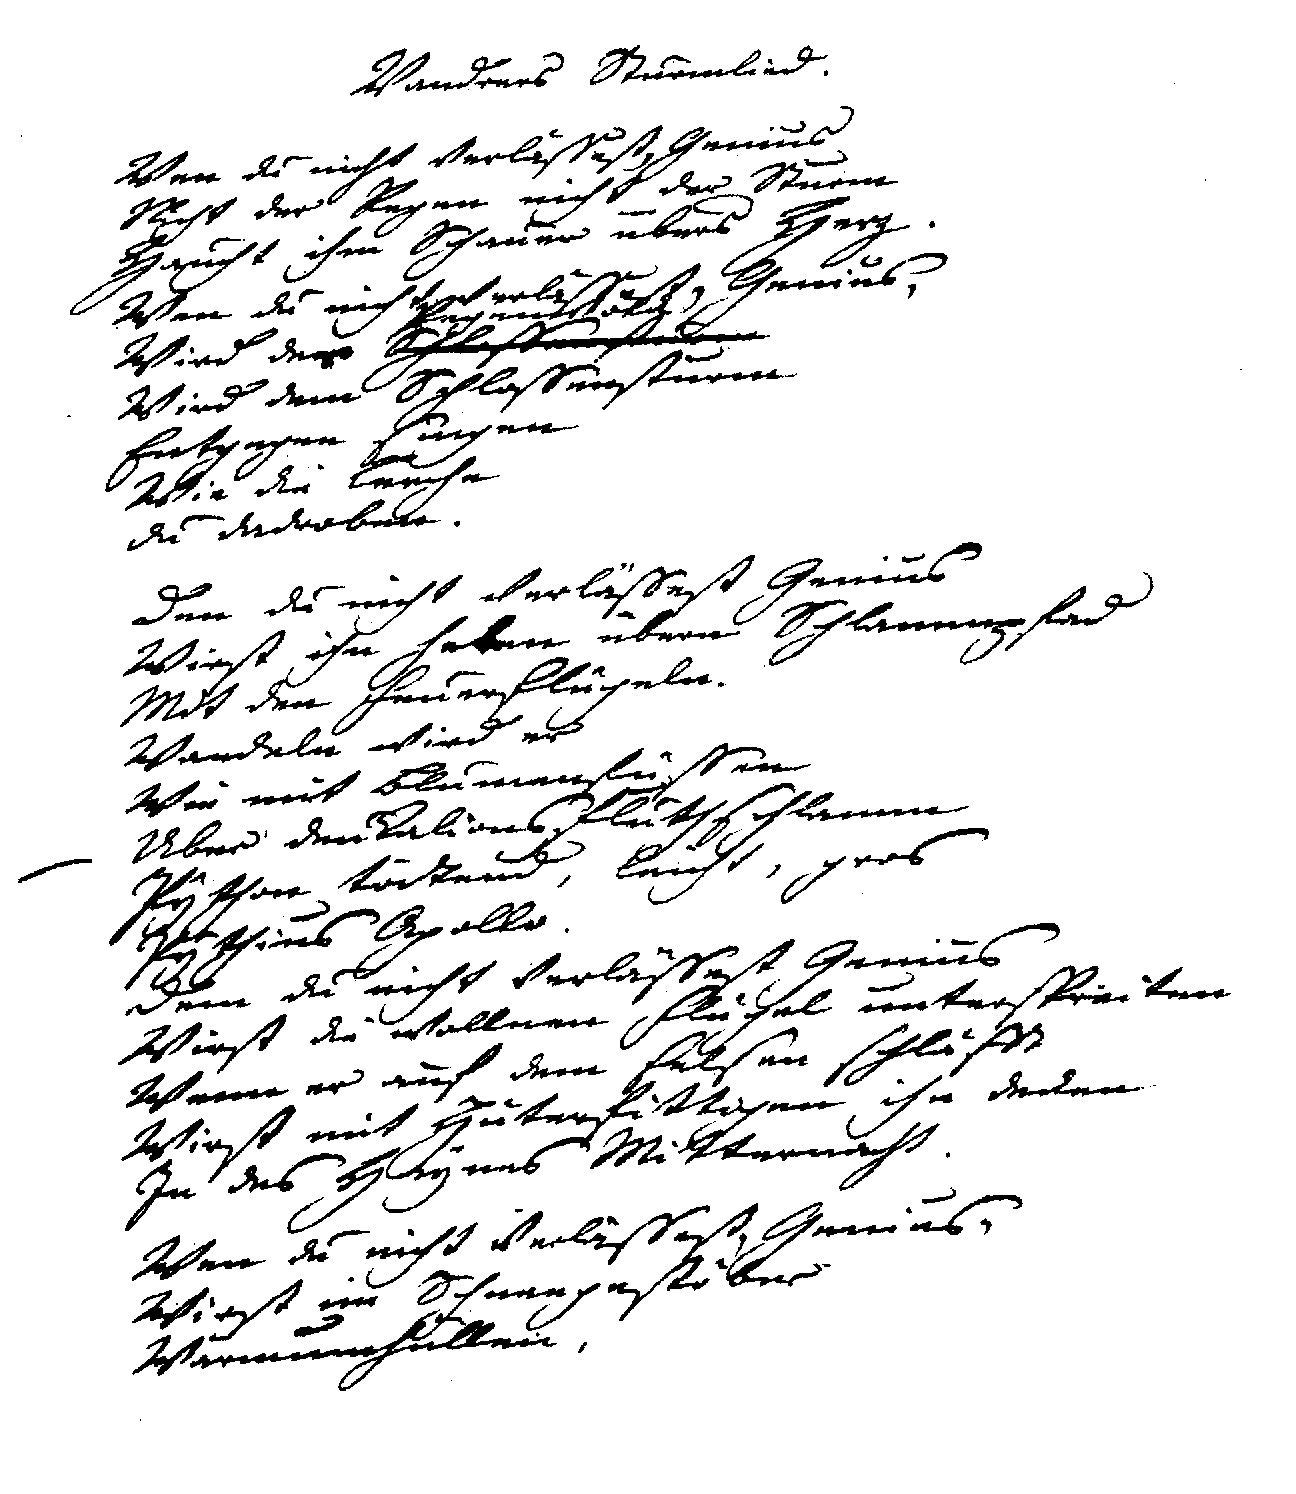 Wandrers Sturmlied.
Wen du nicht verlässest, Genius
Nicht der Regen nicht der Sturm
Haucht ihm Schauer übers Herz.
Wen du nicht verlässest, Genius,
Wird der Regenwolk
Schlossensturm
Wird dem Schlossensturm
Entgegen singen
Wie die Lerche
du dadroben.
Den du nicht verlässest Genius
Wirst ihn heben übern Schlammpfad
Mit den Feuerflügeln.
Wandeln wird er
Wie mit Blumenfüssen
Uber Deukalions Fluthschlamm
Python tödtend, leicht, gros
Pythius Apollo.
Dem du nicht verlässest Genius
Wirst die wollnen Flügel unterspreiten
Wenn er auf dem Felsen schläfft
Wirst mit Hüterfittigen ihn decken
In des Haynes Mitternacht.
Wen du nicht verlässest, Genius,
Wirst im Schneegestöber
Wärmumhüllen,